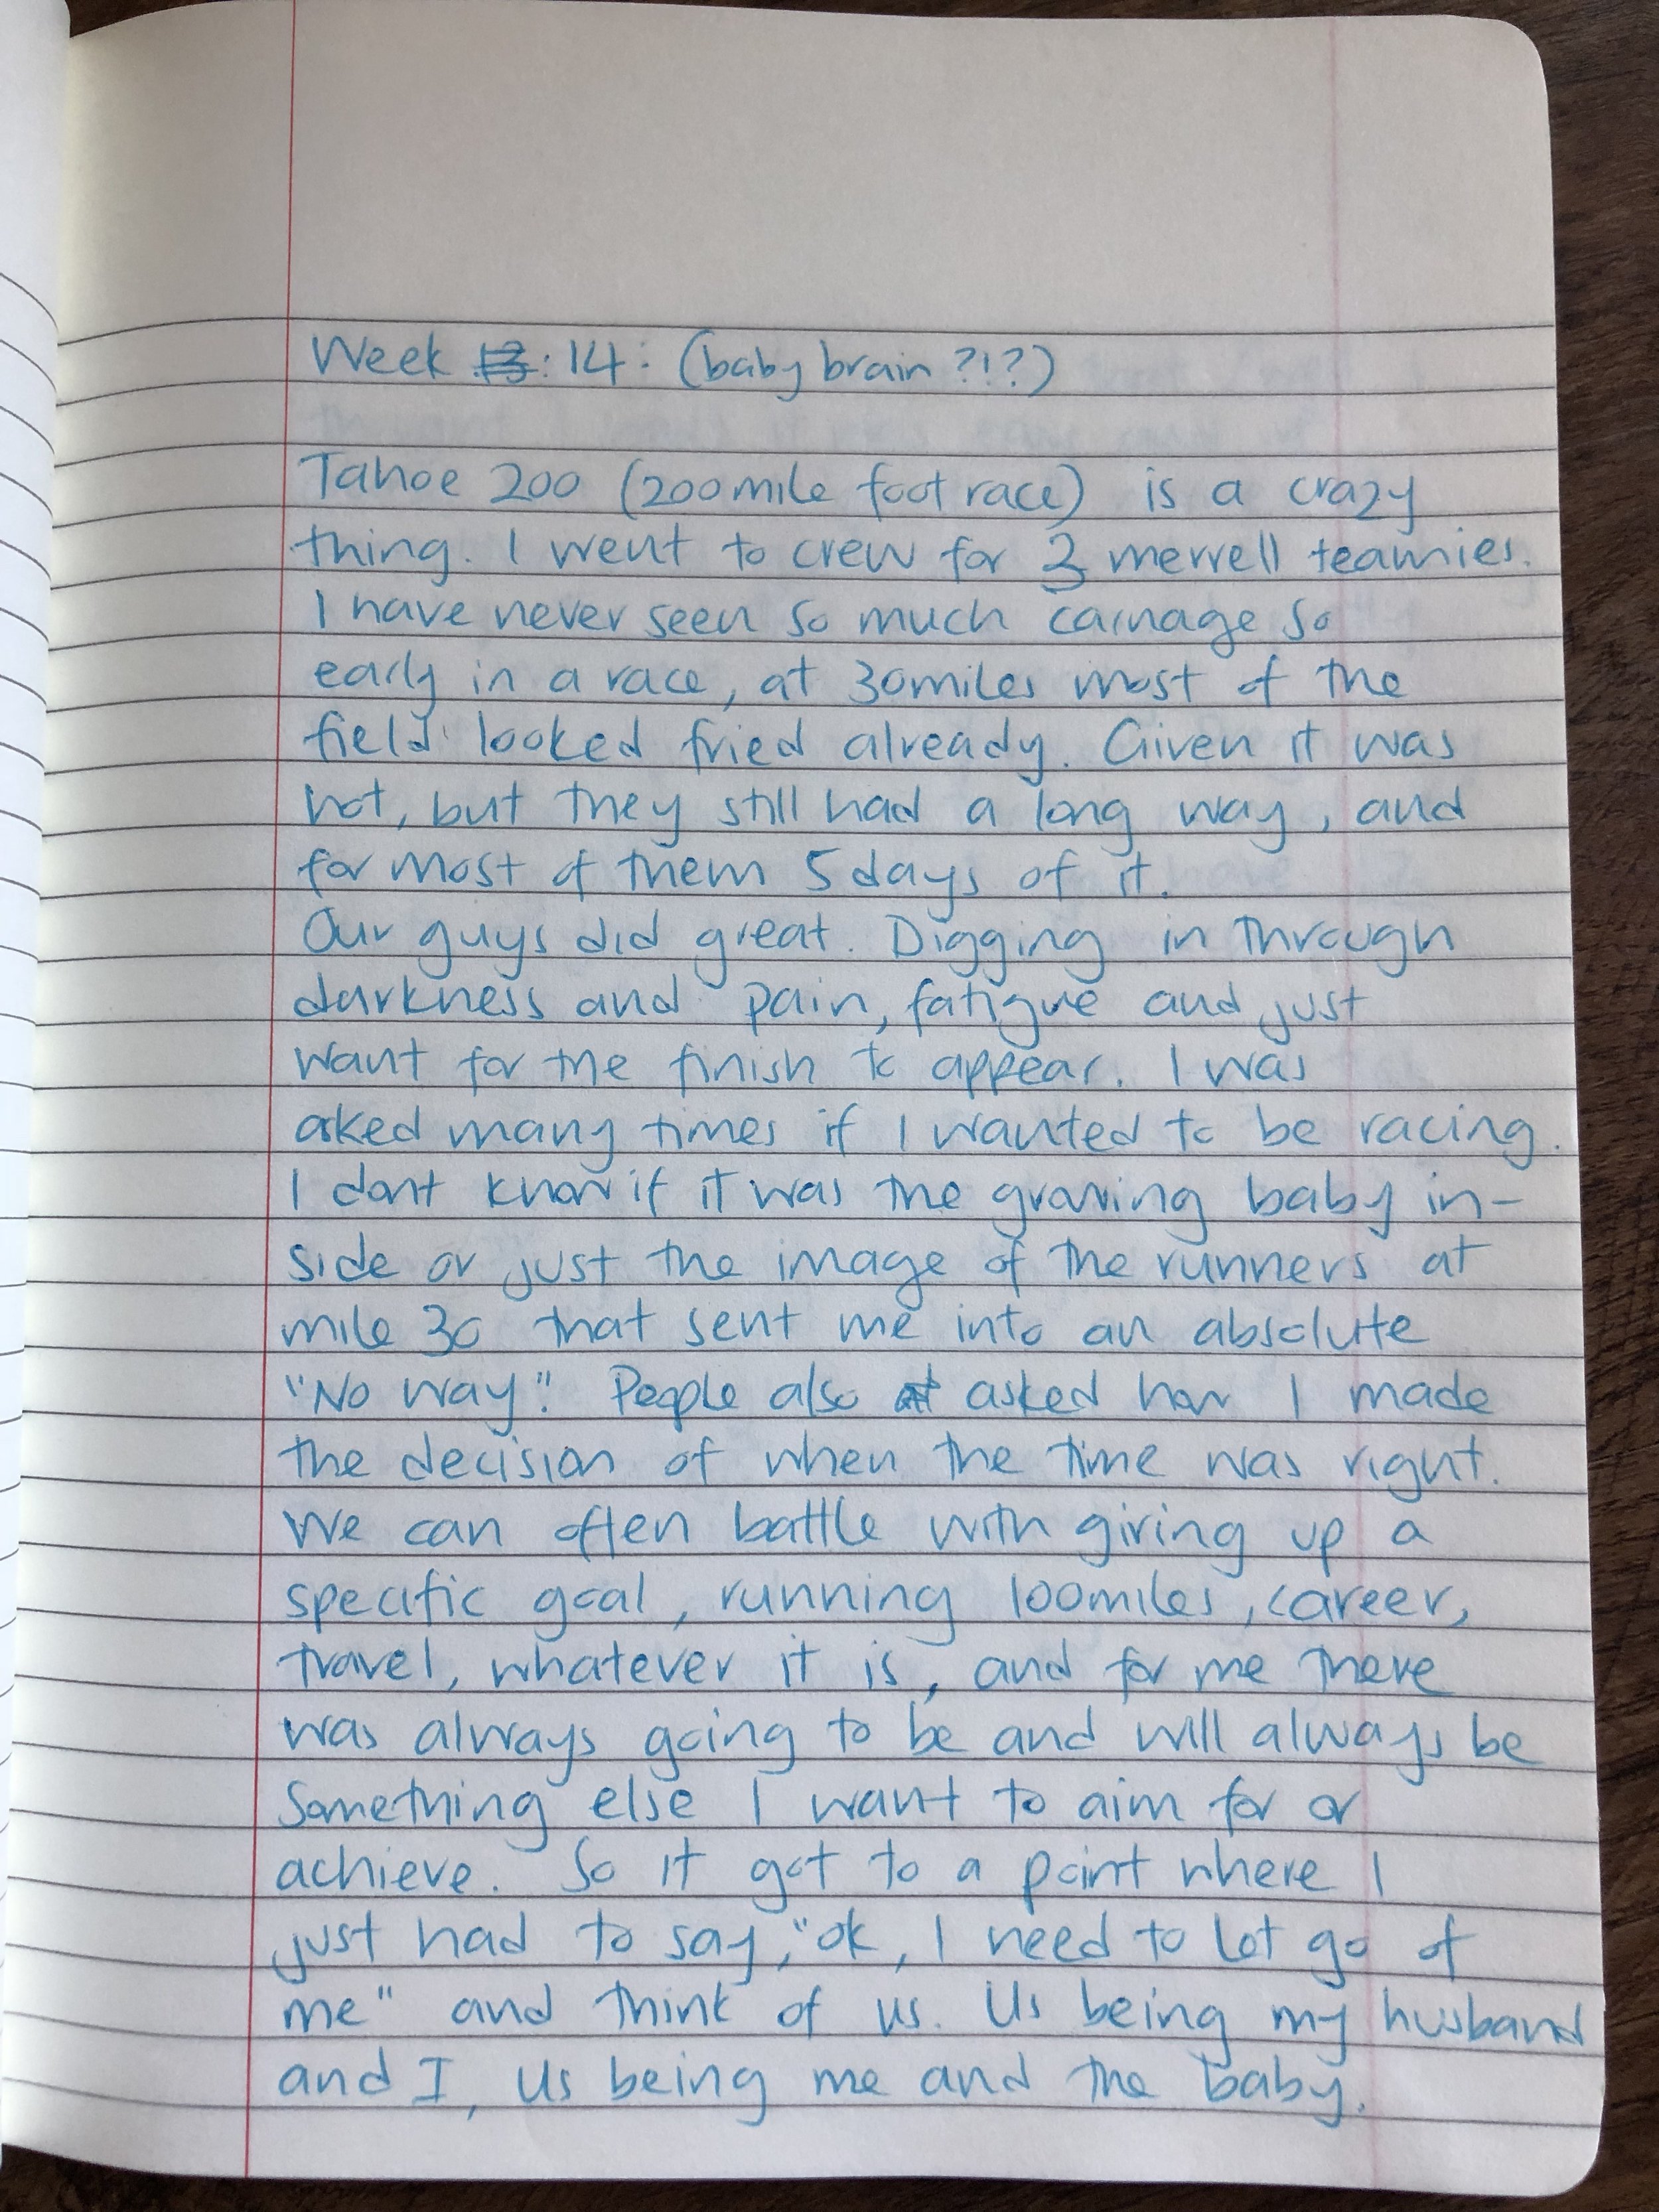 Week 13: 14: (baby brain ?!?)
Tahoe 200 (200mile foot race) is a crazy
thing. I went to crew for 3 merrell teamies.
I have never seen so much carnage so
early in a race, at 30miles most of the
field looked fried already. Given it was
hot, but they still had a long way, and
for most of them 5 days of it.
Our guys did great. Digging in through
darkness and pain, fatigue and just
want for the finish to appear. I was
asked many times if I wanted to be racing.
I dont know if it was the growing baby in-
side or just the image of the runners at
mile 30 that sent me into an absolute
"No way". People also asked how I made
the decision of when the time was right.
We can often battle with giving up a
specific goal, running 100miles, career,
travel, whatever it is, and for me there
was always going to be and will always be
something else I want to aim for or
achieve. So it got to a point where I
just had to say, "ok, I need to let go of
me" and think of us. Us being my husband
and I, us being me and the baby.